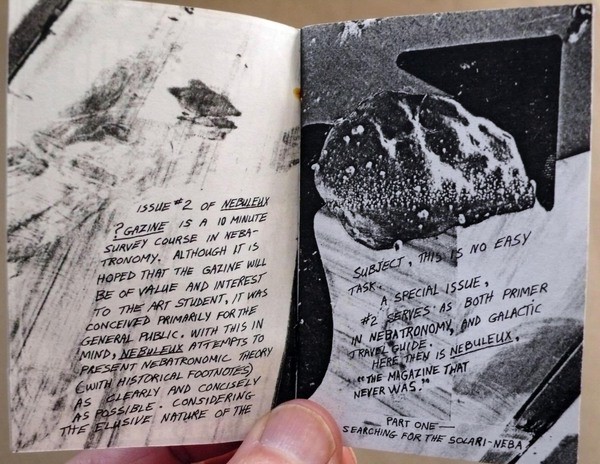 ISSUE #2 OF NEBULEUX
?GAZINE IS A 10 MINUTE
SURVEY COURSE IN NEBA-
TRONOMY. ALTHOUGH IT IS
HOPED THAT THE GAZINE WILL
BE OF VALUE AND INTEREST
TO THE ART STUDENT, IT WAS
CONCEIVED PRIMARILY FOR THE
GENERAL PUBLIC. WITH THIS IN
MIND, NEBULEUX ATTEMPTS TO
PRESENT NEBATRONOMIC THEORY
(WITH HISTORICAL FOOTNOTES)
AS CLEARLY AND CONCISELY
AS POSSIBLE. CONSIDERING
THE ELUSIVE NATURE OF THE
SUBJECT, THIS IS NO EASY
TASK.
A SPECIAL ISSUE,
#2 SERVES AS BOTH PRIMER
IN NEBATRONOMY, AND GALACTIC
TRAVEL GUIDE.
HERE THEN IS NEBULEUX,
"THE MAGAZINE THAT
NEVER WAS."
PART ONE—
SEARCHING FOR THE SOLARI-NEBA